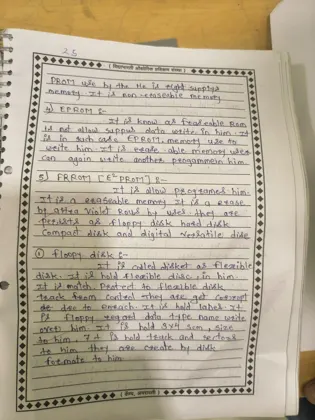 25
PROM use by the He is right supplys
memory. It is non-ereseable memory
4) EPROM :-
It is know as Fealeable Rom
is not allow suppus data write in him. It
is in such case EPROM, memory use to
write him. It is erease able memory user
can again write another progammein him.
5) PRROM [E²PROM] :-
It is allow programes him.
It is a ereaseable memory It is a erase
by ultra violet Rows by user. They are
persists as floppy disk hard disk
Compact disk and digital versatile disk
① floppy disk :-
It is called disket as flexible
disk. It is hold flexible disk, in him
It is match Protect to flexible disk.
track from control They are get corrept
de dec to enrach. It is hold label It
is floppy regard data type name write
over him. It is hold 3x4 scm, size
to him, It is hold track and sectors
to him they are create by disk
formate to him